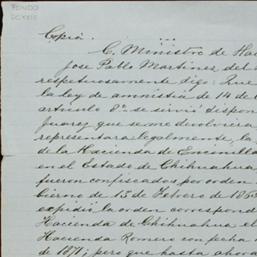 FONDO
DCXXIX
Copia.
C. Ministro de Hac
José Pablo Martinez del
respetuosamente digo: Que
la ley de amnistía de 14 de
artículo 2º se sirvió dispon
Juarez que se me devolviera
representara legalmente, la
de la Hacienda de Encinilla
en el Estado de Chihuahua
fueron confiscados por orden
bierno de 15 de Febrero de 186
expidió la orden correspond
Hacienda de Chihuahua el
Hacienda Romero con fecha
de 1871; pero que hasta ahora